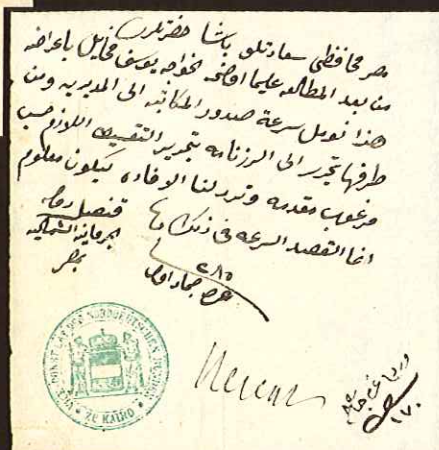 مصر محافظى سعادتلو باشا حضرتلرى
من بعد المطالعه عليما اوضحه الخواجه يوسف مخايل باعراضه
هذا نومل سرعة صدور المكاتبه الى المديريه ومن
طرفها تحرر الى الرزنامه بتحرير التقسيط اللازم حسب
مرغوب مقدمه وتردلنا الافاده ليكون معلوم
انما القصد السرعه فى ذلك
قنصل دولة
جرمانيه الشماليه
بمصر
٢٨٥
VICE CONSULAT DES NORDDEUTSCHEN BUNDES
ZU KAIRO
١٧٠